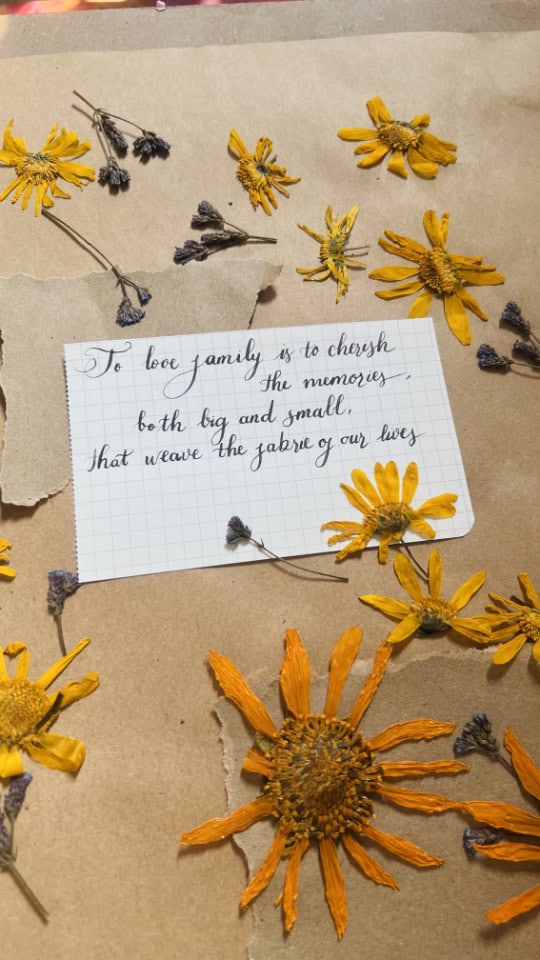 To love family is to cherish
the memories,
both big and small,
that weave the fabric of our lives